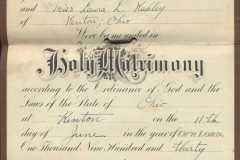 and Miss Laura L.
Kenton, Ohio
Were by me united in
Holy Matrimony
according to the Ordinance of God and the
Laws of the State of Ohio
at Kenton on the 11th
day of June in the year of
One Thousand Nine Hundred and Thirty